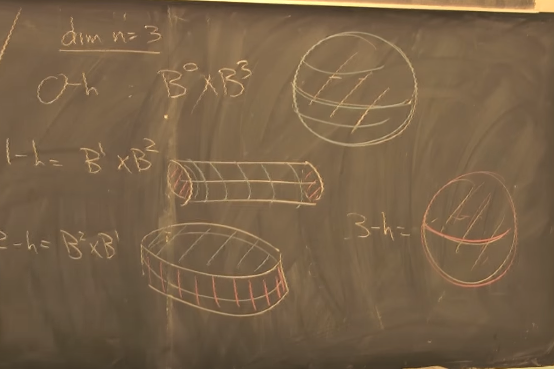 dim n=3
0-h : B⁰×B³
1-h = B¹×B²
2-h = B²×B¹
3-h =